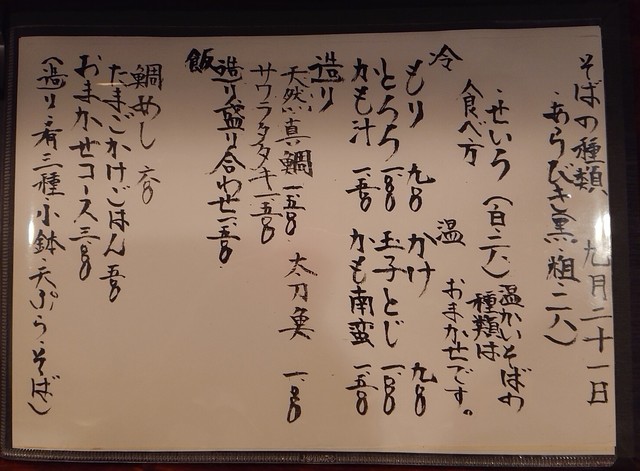 そばの種類 九月二十一日
・あらびき(黒・粗・二八)
・せいろ(白・二八)
温かいそばの
種類は
おまかせです。
食べ方
冷 温
もり 九〇〇 かけ 九〇〇
とろろ 玉子とじ
かも汁 一、五〇〇 かも南蛮 一、五〇〇
造り
天然真鯛 一、五〇〇 太刀魚
サワラタタキ 一、五〇〇
造り盛り合わせ 一、五〇〇
飯
鯛めし 六〇〇
たまごかけごはん 五〇〇
おまかせコース
(造り・肴三種・小鉢・天ぷら・そば)